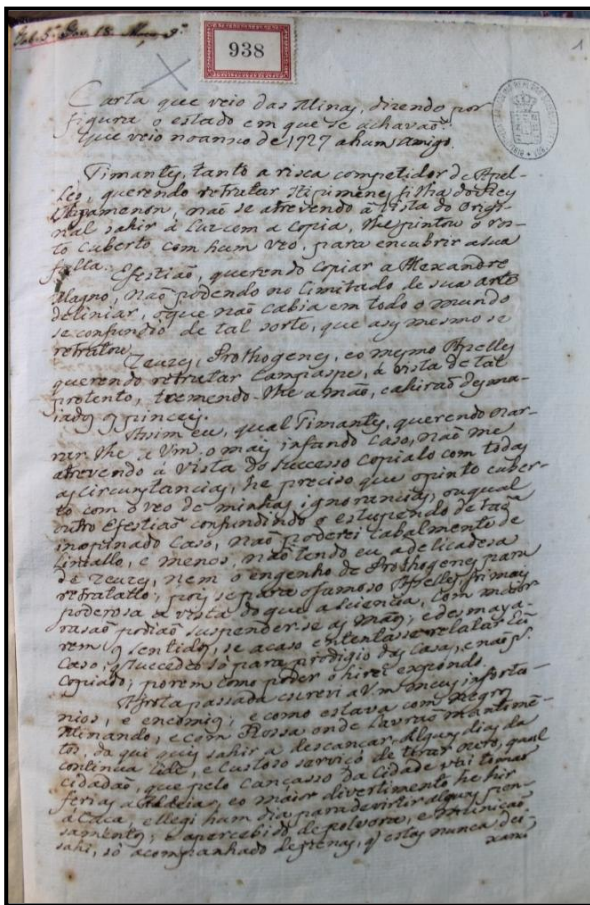 938
1
Carta que veio das Minas, dizendo por
figura o estado em que se achavaõ:
que veio no anno de 1727 a hum amigo.
Timantes, tanto a risca competidor de Apel-
les, querendo retratar Ifigimene, filha do Rey
Agamenon, naõ se atrevendo à vista do Origi-
nal sahir à luz com a copia, lhe pintou o ros-
to cuberto com hum veo, para encubrir a sua
falta. Efestiaõ, querendo copiar a Alexandre
Magno, naõ podendo no limitado de sua arte
deliniar, o que naõ cabia em todo o mundo
se confundio de tal sorte, que a sy mesmo se
retratou.
Zeuxes, Prothogenes, e o mesmo Apelles
querendo retratar Campaspe, à vista de tal
protento, tremendo-lhe a maõ, cahiraõ desma-
iados os pinceis.
Assim eu, qual Timantes, querendo nar-
rar lhe a Vm. o mais infando caso, naõ me
atrevendo à vista do sucesso copialo com todas
as circunstancias, he preciso que o pinto cuber-
to com o veo de minhas ignorancias, ou qual
outro Efestiaõ confundindo o estupendo de taõ
inopinado caso, naõ poderei cabalmente
pintallo, e menos, naõ tendo eu, a delicadesa
de Zeuxes, nem o engenho de Prothogenes para
retratallo; pois se para o famoso Apelles, foi mais
poderosa a vista do que a sciencia, com maior
rasaõ podiaõ suspender-se as maõs, e desmaya-
rem os sentidos, se acaso intentasse relatar
caso, sucedeo só para prodigio da casa, e naõ p.ª
copiado; porem como poder o hirei expondo.
A frota passada escrevi a Vm. meus infortu-
nios, e encomios; e como estava com negros
Minando, e com Rossa onde lavrar mantimen-
tos, da qui quis sahir a descançar alguns dias da
continua lide, e custoso serviço de tirar ouro, qual
cidadaõ, que pelo cançasso da Cidade vai tomar
ferias a Aldeias, e o maior divertimento he hir
à caça, ellegi hum dia para devirtir alguns pen-
samentos; e apercebido de polvora, e muniçaõ
sahi, só acompanhado de penas, q estas nunca dei-
xaraõ